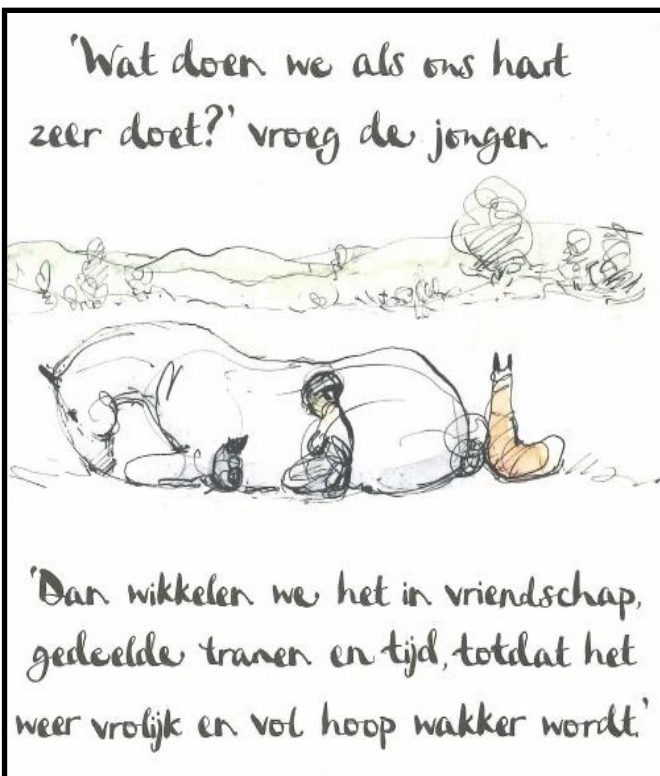 'Wat doen we als ons hart
zeer doet?' vroeg de jongen.
'Dan wikkelen we het in vriendschap,
gedeelde tranen en tijd, totdat het
weer vrolijk en vol hoop wakker wordt.'